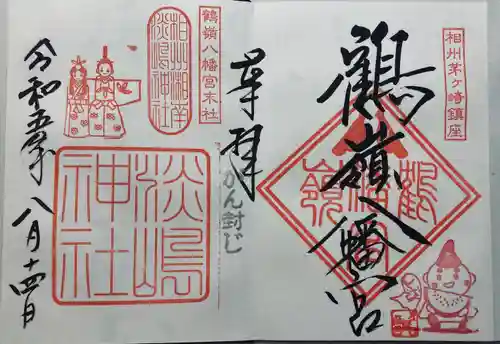 相州茅ヶ崎鎮座
鶴嶺八幡宮
鶴嶺
八幡宮
奉拝
鶴嶺八幡宮末社
相州湘南
淡嶋神社
かん封じ
淡嶋
神社
令和五年八月十四日